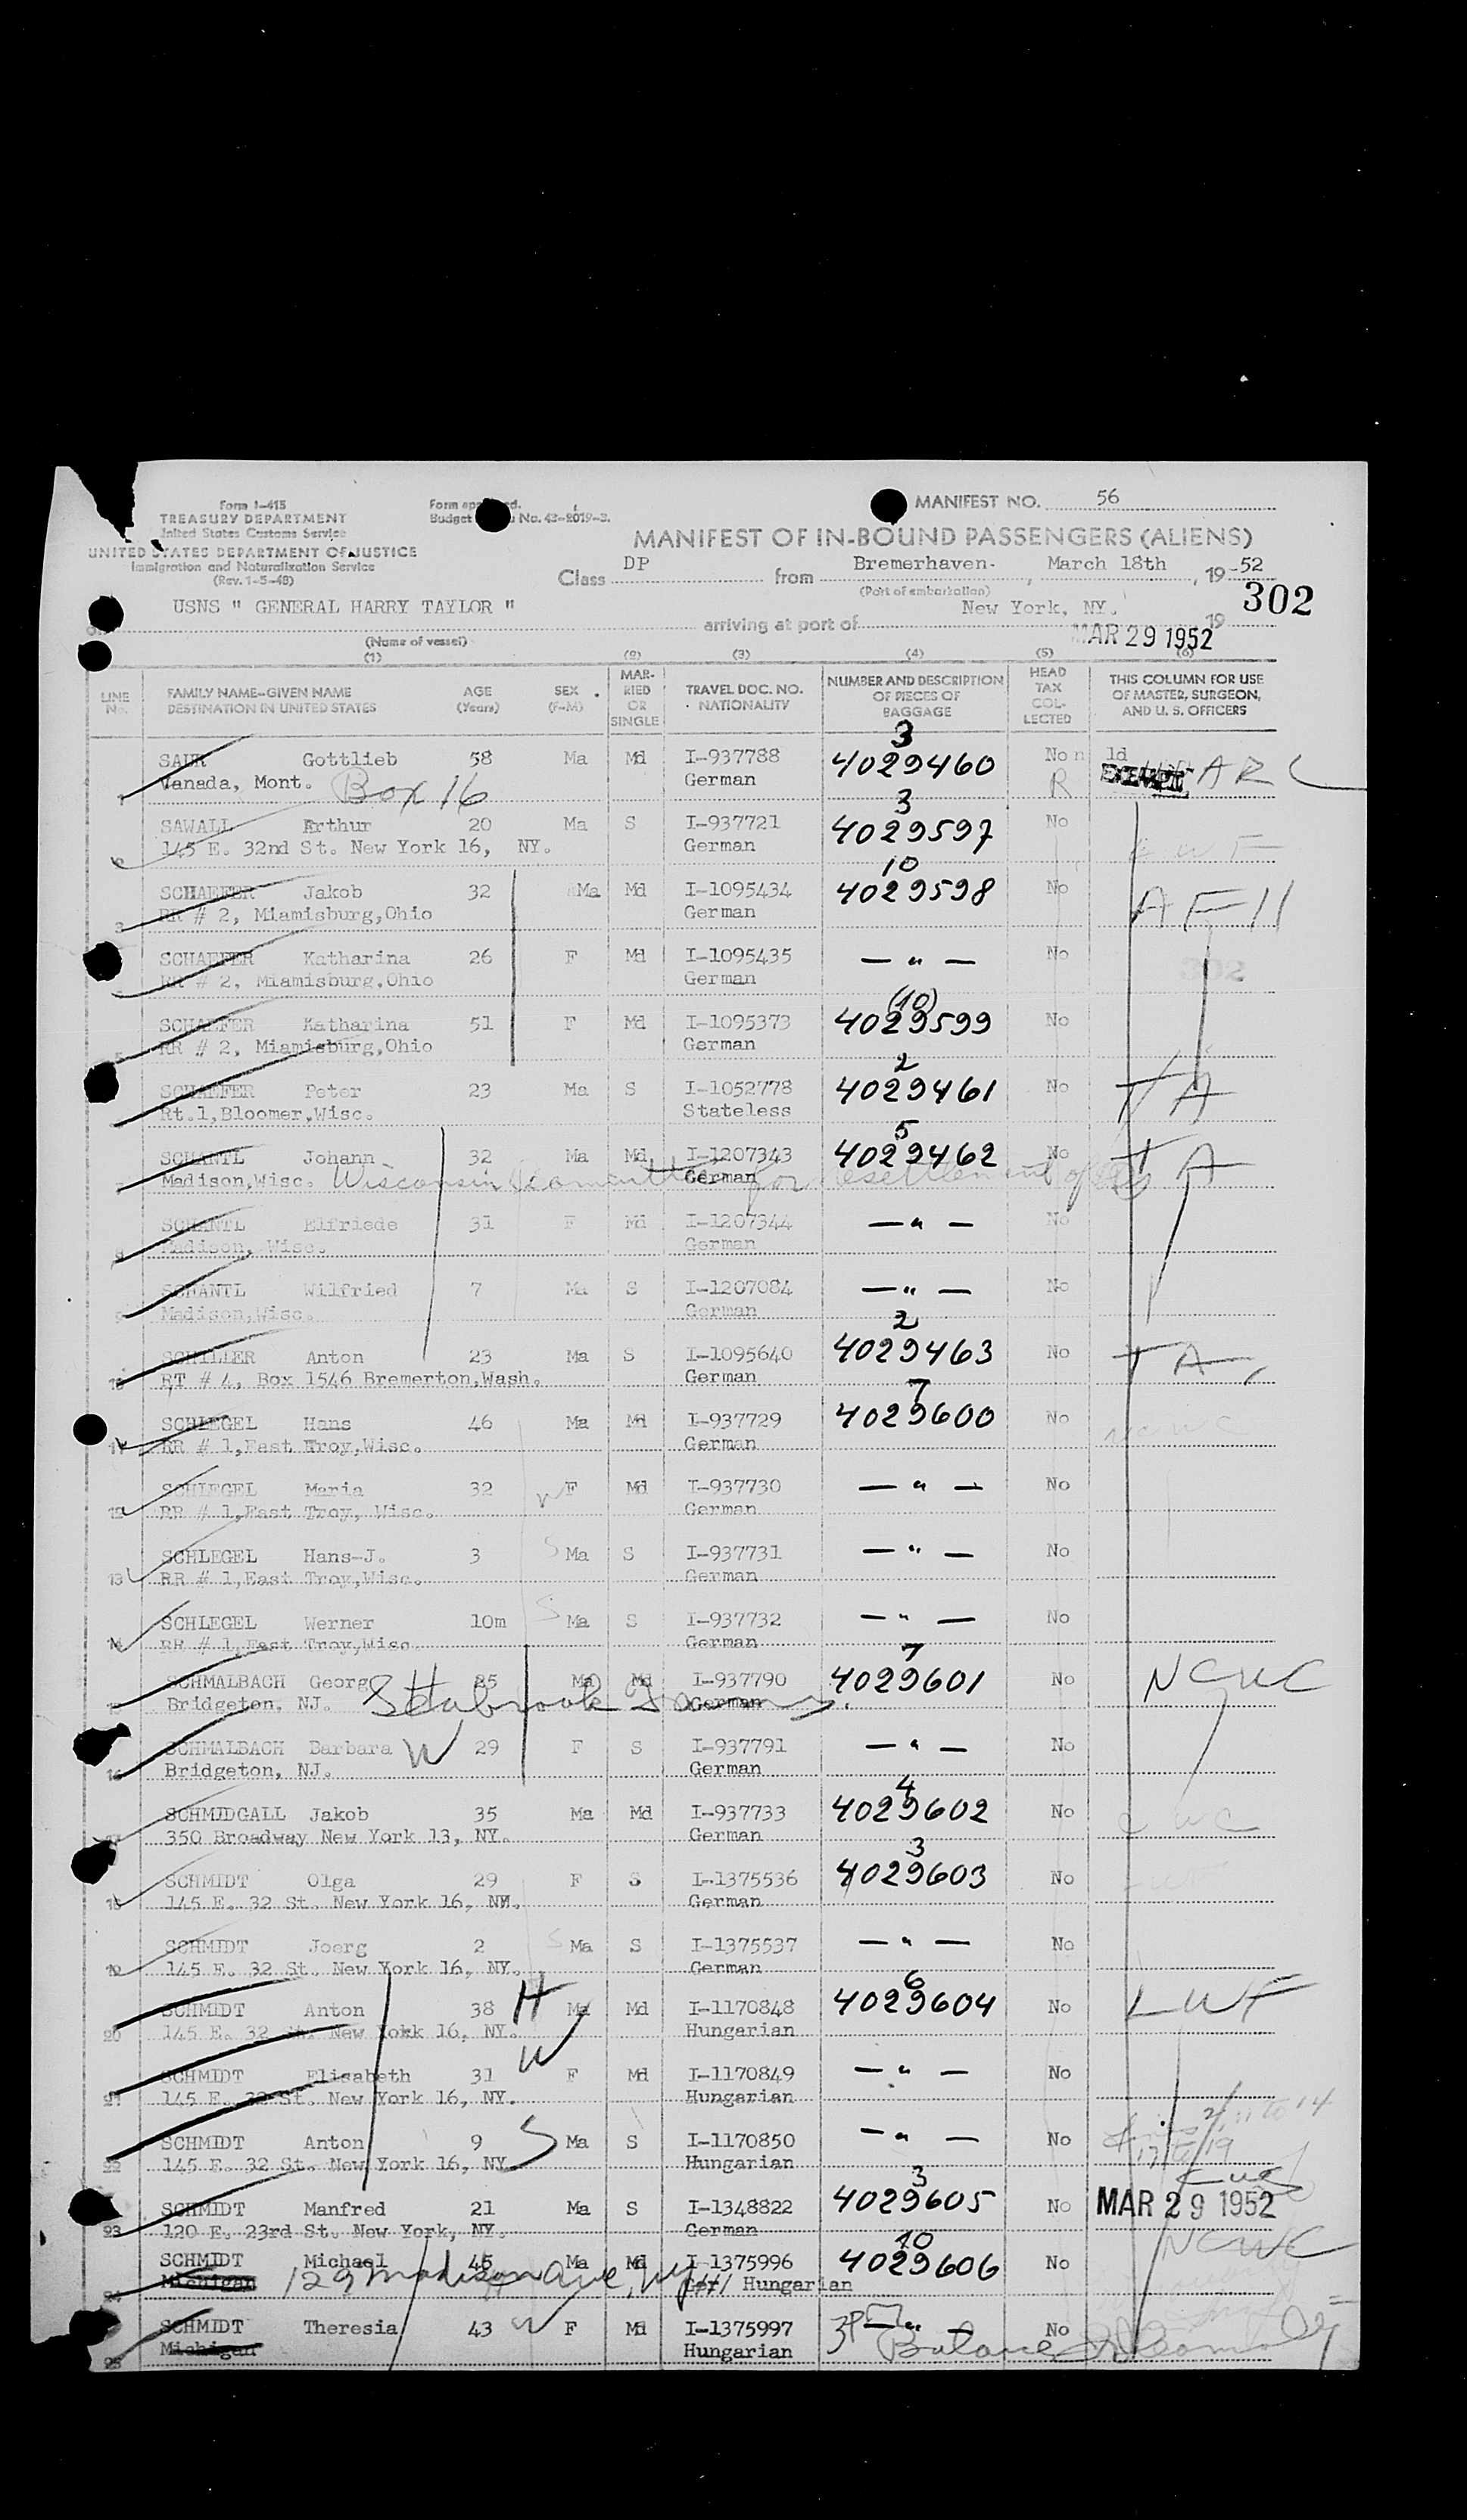 Form I-415
TREASURY DEPARTMENT
United States Customs Service
UNITED STATES DEPARTMENT OF JUSTICE
Immigration and Naturalization Service
(Rev. 1-5-48)
Form approved.
Budget No. 43-R019-3.
MANIFEST NO. 56
MANIFEST OF IN-BOUND PASSENGERS (ALIENS)
Class DP from Bremerhaven- , March 18th , 19 -52
(Port of embarkation)
302
USNS " GENERAL HARRY TAYLOR " arriving at port of New York, NY. 19
(Name of vessel)
MAR 29 1952
(1) (2) (3) (4) (5) (6)
LINE No. FAMILY NAME-GIVEN NAME DESTINATION IN UNITED STATES AGE (Years) SEX (F-M) MARRIED OR SINGLE TRAVEL DOC. NO. NATIONALITY NUMBER AND DESCRIPTION OF PIECES OF BAGGAGE HEAD TAX COLLECTED THIS COLUMN FOR USE OF MASTER, SURGEON, AND U. S. OFFICERS
3
1 SAUR Gottlieb 58 Ma Md I-937788 4029460 No n ld
Vanada, Mont. Box 16 German R ARC
3
2 SAWALL Arthur 20 Ma S I-937721 4029597 No
145 E. 32nd St. New York 16, NY. German LWF
10
3 SCHAEFER Jakob 32 Ma Md I-1095434 4029598 No
RR # 2, Miamisburg,Ohio German AFII
4 SCHAEFER Katharina 26 F Md I-1095435 — " — No
RR # 2, Miamisburg,Ohio German 302
(10)
5 SCHAEFER Katharina 51 F Md I-1095373 4029599 No
RR # 2, Miamisburg,Ohio German
2
6 SCHAEFER Peter 23 Ma S I-1052778 4029461 No TA
Rt.1,Bloomer,Wisc. Stateless
5
7 SCHANTL Johann 32 Ma Md I-1207343 4029462 No TA
Madison,Wisc. Wisconsin Committee for resettlement of German
8 SCHANTL Elfriede 31 F Md I-1207344 — " — No
Madison, Wisc. German
9 SCHANTL Wilfried 7 Ma S I-1207084 — " — No
Madison,Wisc. German
2
10 SCHILLER Anton 23 Ma S I-1095640 4029463 No TA
RT # 4, Box 1546 Bremerton,Wash. German
7
11 SCHLEGEL Hans 46 Ma Md I-937729 4029600 No
RR # 1,East Troy,Wisc. German NCWC
12 SCHLEGEL Maria 32 W F Md I-937730 — " — No
RR # 1,East Troy, Wisc. German
13 SCHLEGEL Hans-J. 3 S Ma S I-937731 — " — No
RR # 1,East Troy,Wisc. German
14 SCHLEGEL Werner 10m S Ma S I-937732 — " — No
RR # 1,East Troy,Wisc. German
7
15 SCHMALBACH Georg 35 Ma Md I-937790 4029601 No NCWC
Bridgeton, NJ. Seabrook Farms. German
16 SCHMALBACH Barbara W 29 F S I-937791 — " — No
Bridgeton, NJ. German
4
17 SCHMIDGALL Jakob 35 Ma Md I-937733 4029602 No CWC
350 Broadway New York 13, NY. German
3
18 SCHMIDT Olga 29 F S I-1375536 4029603 No
145 E. 32 St. New York 16, NY. German
19 SCHMIDT Joerg 2 S Ma S I-1375537 — " — No
145 E. 32 St. New York 16, NY. German
6
20 SCHMIDT Anton 38 H Ma Md I-1170848 4029604 No LWF
145 E. 32 St. New York 16, NY. Hungarian
21 SCHMIDT Elisabeth 31 W F Md I-1170849 — " — No
145 E. 32 St. New York 16, NY. Hungarian
22 SCHMIDT Anton 9 S Ma S I-1170850 — " — No
145 E. 32 St. New York 16, NY Hungarian
3
23 SCHMIDT Manfred 21 Ma S I-1348822 4029605 No MAR 29 1952
120 E. 23rd St. New York, NY. German
10
24 SCHMIDT Michael 45 Ma Md I-1375996 4029606 No NCWC
Michigan 129 Madison Ave, NY Hungarian
25 SCHMIDT Theresia 43 W F Md I-1375997 3P — " — No
Michigan Hungarian Balance